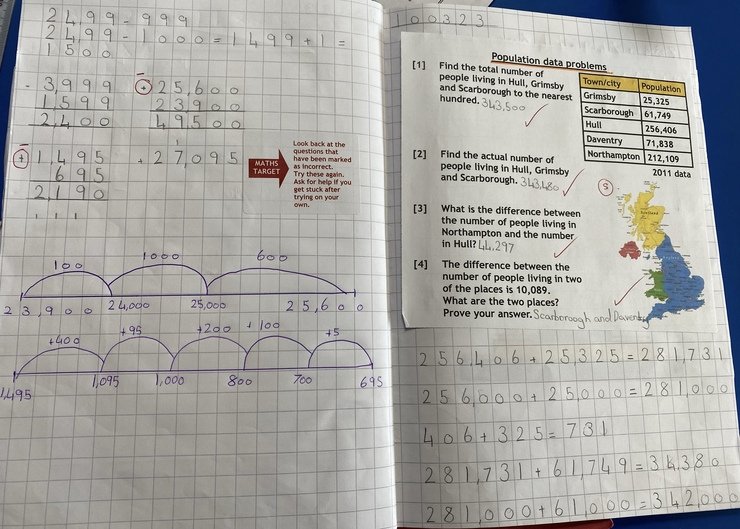 24,99 - 999
24,99 - 1000 = 1499 + 1 =
1500
- 3,999
1,599
2,400
+ 25,600
23900
49500
+ 1,495
695
2,190
1 1 1
1
+ 27,095
MATHS TARGET
Look back at the
questions that
have been marked
as incorrect.
Try these again.
Ask for help if you
get stuck after
trying on your
own.
100 1000 600
23,900 24,000 25,000 25,600
+400 +95 +200 +100 +5
1,495 1,095 1,000 800 700 695
100323
Population data problems
[1] Find the total number of
people living in Hull, Grimsby
and Scarborough to the nearest
hundred. 343,500
Town/city Population
Grimsby 25,325
Scarborough 61,749
Hull 256,406
Daventry 71,838
Northampton 212,109
2011 data
[2] Find the actual number of
people living in Hull, Grimsby
and Scarborough. 343,480
S
[3] What is the difference between
the number of people living in
Northampton and the number
in Hull? 44,297
[4] The difference between the
number of people living in two
of the places is 10,089.
What are the two places?
Prove your answer. Scarboroogh and Daventry
256,406 + 25325 = 281,731
256,000 + 25,000 = 281,000
406 + 325 = 731
281,731 + 61,749 = 34380
281,000 + 61,000 = 342,000